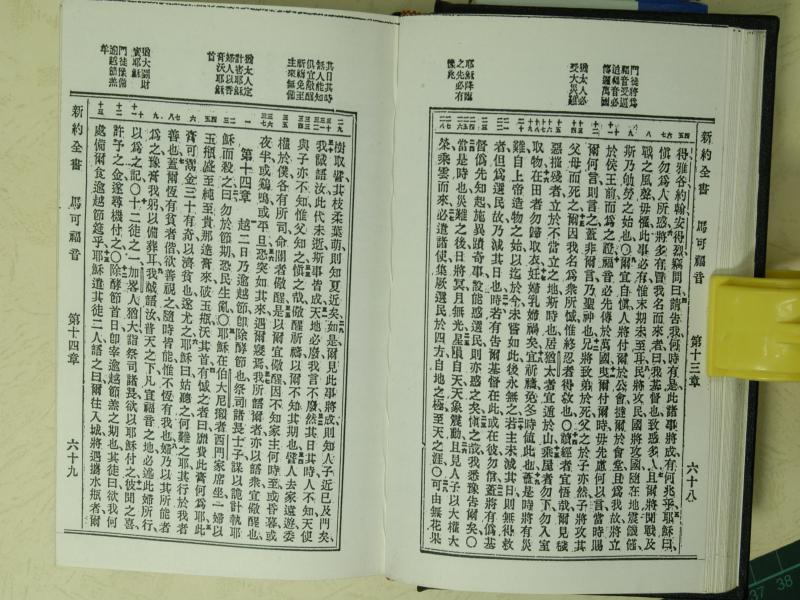 新約全書 馬可福音 第十三章 六十八
門徒將爲
福音受逼
迫福音必
傳遍萬國
猶太人必
受大災難
耶穌降臨
之先必有
得雅各約翰安得烈竊問曰請告我何時有是此諸事將成有何兆乎耶穌曰
愼勿爲人所惑將多有冒我名而來者曰我基督也致惑多人且爾將聞戰及
戰之風聲毋懼此事必有惟末期未至耳民將攻民國將攻國隨在地震饑饉
斯乃劬勞之始也〇爾宜自愼人將付爾於公會撻爾於會堂且爲我故將立
於侯王前而爲之證福音必先傳於萬國曳爾付爾時毋先慮何以言當時賜
爾何言則言之蓋非爾言乃聖神也兄將致弟於死父之於子亦然子將攻其
父母而死之爾因我名爲衆所憾惟終忍者得救也〇讀經者宜悟哉爾見
惡摧殘者立於不當立之地斯時也居猶太者宜遁於山乘屋者勿下勿入室
取物在田者勿歸取衣妊婦乳婦禍矣宜祈禱免冬時値此也蓋是時將有災
難自上帝造物之始以迄於今未嘗如此後永無之若主未減其日則無得救
者但爲選民故乃減其日也時若有告爾基督在此或在彼勿信蓋將有僞基
督僞先知起施異蹟奇事設能惑選民則亦惑之矣愼之哉我悉豫告爾矣〇
當是時也災難之後日將冥月無光星隕自天天象震動且見人子以大權大
榮乘雲而來必遣諸使集厥選民於四方自地之極至天之涯〇可由無花果
樹取譬其枝柔葉萌則知夏近矣如是爾見此事將成則知人子近已及門矣
我誠語汝此代未逝斯事皆成天地必廢我言不廢然其日其時人不知天使
與子亦不知惟父知之愼之哉儆醒祈禱以爾不知其期也人去家遠遊委
權於僕各有所司命閽者儆醒是以爾宜儆醒因不知家主何時至或昏暮或
夜半或鷄鳴或平旦恐突如其來遇爾寢焉我所語爾者亦以語衆宜儆醒也
第十四章 越二日乃逾越節卽除酵節也祭司諸長士子謀以詭計執耶
穌而殺之曰勿於節期恐民生亂〇耶穌在伯大尼癩者西門家席坐一婦以
玉瓶盛至純至貴那達膏來破玉瓶沃其首有憾之者曰糜費此膏何爲耶此
膏可鬻金三十有奇以濟貧也遂尤之耶穌曰姑聽之何難之耶其行於我者
善也蓋爾恆有貧者偕欲善視之隨時皆能惟不恆有我也婦乃以其所能者
爲之豫膏我躬以備葬耳我誠語汝普天之下凡宣福音之地必述此婦所行
以爲之記〇十二徒之一加畧人猶大詣祭司諸長欲以耶穌付之彼聞之喜
許予之金遂尋機付之〇除酵節首日卽宰逾越節羔之期也其徒曰欲我何
處備爾食逾越節筵乎耶穌遣其徒二人語之曰爾往入城將遇攜水瓶者爾
其日其時
無人能知
俱宜儆醒
祈禱免至
主來無備
猶太人定
計害耶穌
婦人以香
膏沃耶穌
首
猶大圖財
賣耶穌
門徒豫備
逾越節羔
新約全書 馬可福音 第十四章 六十九
37 38